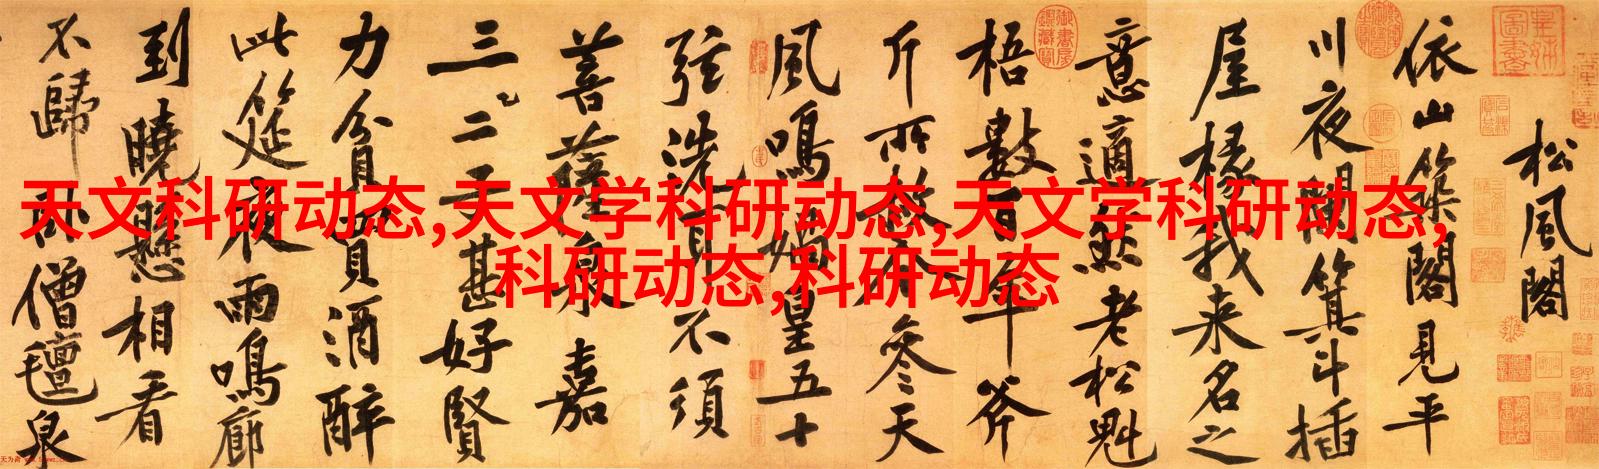 天文科研动态,天文学科研动态,天文学科研动态,
科研动态,科研动态
松風閣
依山築閣見平
川夜闌箕斗插
屋椽我来名之
意適然老松魁
梧數百年斧
斤所赦今參天
風鳴媧皇五十
弦洗耳不須
菩薩泉嘉
三二子甚好賢
力貧買酒醉
此筵夜雨鳴廊
到曉懸相看
不歸卧僧氈泉
皇姊圖書